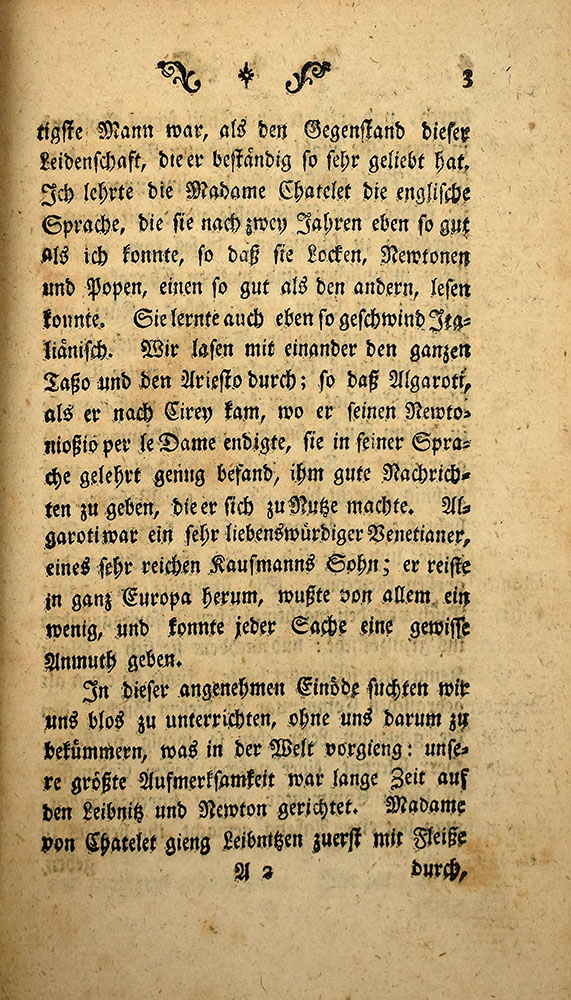 3
tigste Mann war, als den Gegenstand dieser
Leidenschaft, die er beständig so sehr geliebt hat.
Ich lehrte die Madame Chatelet die englische
Sprache, die sie nach zwey Jahren eben so gut
als ich konnte, so daß sie Locken, Newtonen
und Popen, einen so gut als den andern, lesen
konnte. Sie lernte auch eben so geschwind Ita-
liänisch. Wir lasen mit einander den ganzen
Taßo und den Ariesto durch; so daß Algaroti,
als er nach Cirey kam, wo er seinen Newto-
nioßio per le Dame endigte, sie in seiner Spra-
che gelehrt genug befand, ihm gute Nachrich-
ten zu geben, die er sich zu Nutze machte. Al-
garoti war ein sehr liebenswürdiger Venetianer,
eines sehr reichen Kaufmanns Sohn; er reiste
in ganz Europa herum, wußte von allem ein
wenig, und konnte jeder Sache eine gewisse
Anmuth geben.
In dieser angenehmen Einöde suchten wir
uns blos zu unterrichten, ohne uns darum zu
bekümmern, was in der Welt vorgieng: unse-
re größte Aufmerksamkeit war lange Zeit auf
den Leibnitz und Newton gerichtet. Madame
von Chatelet gieng Leibnitzen zuerst mit Fleiße
A 2 durch,